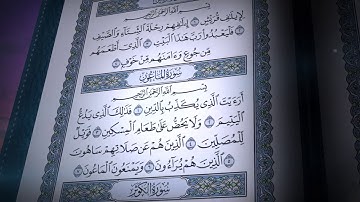 بِسْمِ اللَّهِ الرَّحْمَٰنِ الرَّحِيمِ
لِإِيلَافِ قُرَيْشٍ ۝١ إِۦلَافِهِمْ رِحْلَةَ الشِّتَاءِ وَالصَّيْفِ
۝٢ فَلْيَعْبُدُوا رَبَّ هَٰذَا الْبَيْتِ ۝٣ الَّذِي أَطْعَمَهُم
مِّن جُوعٍ وَءَامَنَهُم مِّنْ خَوْفٍ ۝٤
سُورَةُ الْمَاعُونِ
بِسْمِ اللَّهِ الرَّحْمَٰنِ الرَّحِيمِ
أَرَءَيْتَ الَّذِي يُكَذِّبُ بِالدِّينِ ۝١ فَذَٰلِكَ الَّذِي يَدُعُّ
الْيَتِيمَ ۝٢ وَلَا يَحُضُّ عَلَىٰ طَعَامِ الْمِسْكِينِ ۝٣ فَوَيْلٌ
لِّلْمُصَلِّينَ ۝٤ الَّذِينَ هُمْ عَن صَلَاتِهِمْ سَاهُونَ
۝٥ الَّذِينَ هُمْ يُرَاءُونَ ۝٦ وَيَمْنَعُونَ الْمَاعُونَ ۝٧
سُورَةُ الْكَوْثَرِ